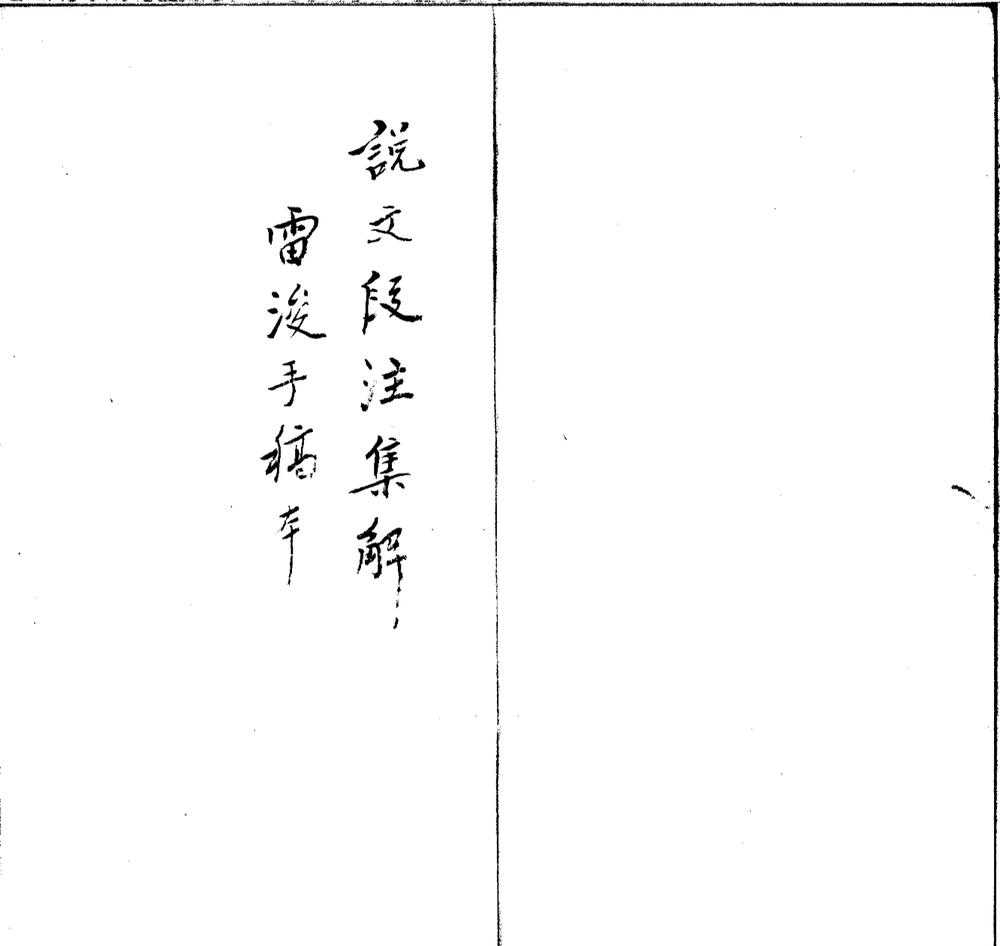 說文段注集解
雷浚手稿本